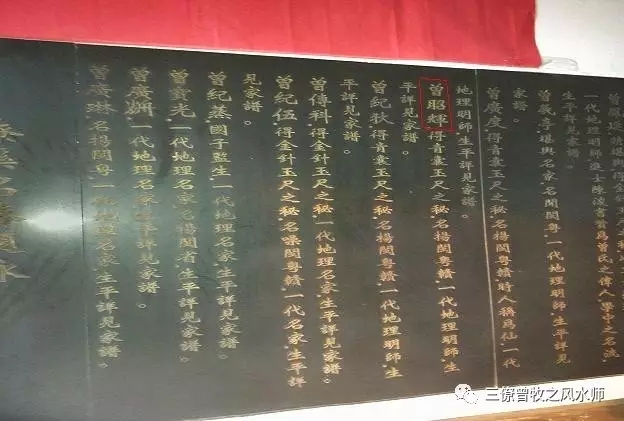 一代地理明師生
為曾民之偉人學中之名流
堪輿家名聞閩粵一代地理明師生平詳見
家譜。
曾廣度得青囊玉尺之秘名揚閩粵贛時人稱為仙一代
地理明師生平詳見家譜。
曾昭輝得青囊玉尺之秘名揚閩粵贛一代地理明師生
平詳見家譜。
曾紀狄得青囊玉尺之秘名揚閩粵贛一代地理明師生
平詳見家譜。
曾傳科得金針玉尺之秘一代地理名家生平詳見家譜。
曾紀伍得金針玉尺之秘名噪閩粵贛一代名家生平詳
見家譜。
曾紀蒸國子監生一代地理名家生平詳見家譜。
曾憲光一代地理名家名揚閩省生平詳見家譜。
曾廣一代地理名家生平詳見家譜。
曾廣琳名揚閩粵一代地理名家生平詳見家譜。
三僚曾牧之风水师